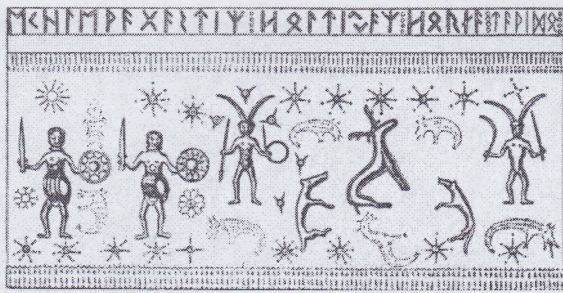 ᛖᚲᚺᛚᛖᚹᚨᚷᚨᛊᛏᛁᛉ᛬ᚺᛟᛚᛏᛁᛃᚨᛉ᛬ᚺᛟᚱᚾᚨ᛬ᛏᚨᚹᛁᛞᛟ᛬